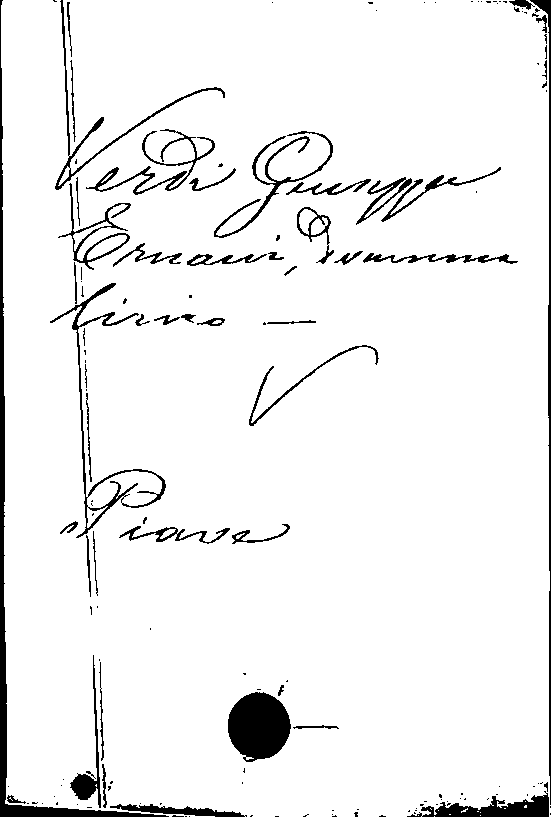 Verdi Giuseppe
Ernani, dramma
lirico —
V
Piave